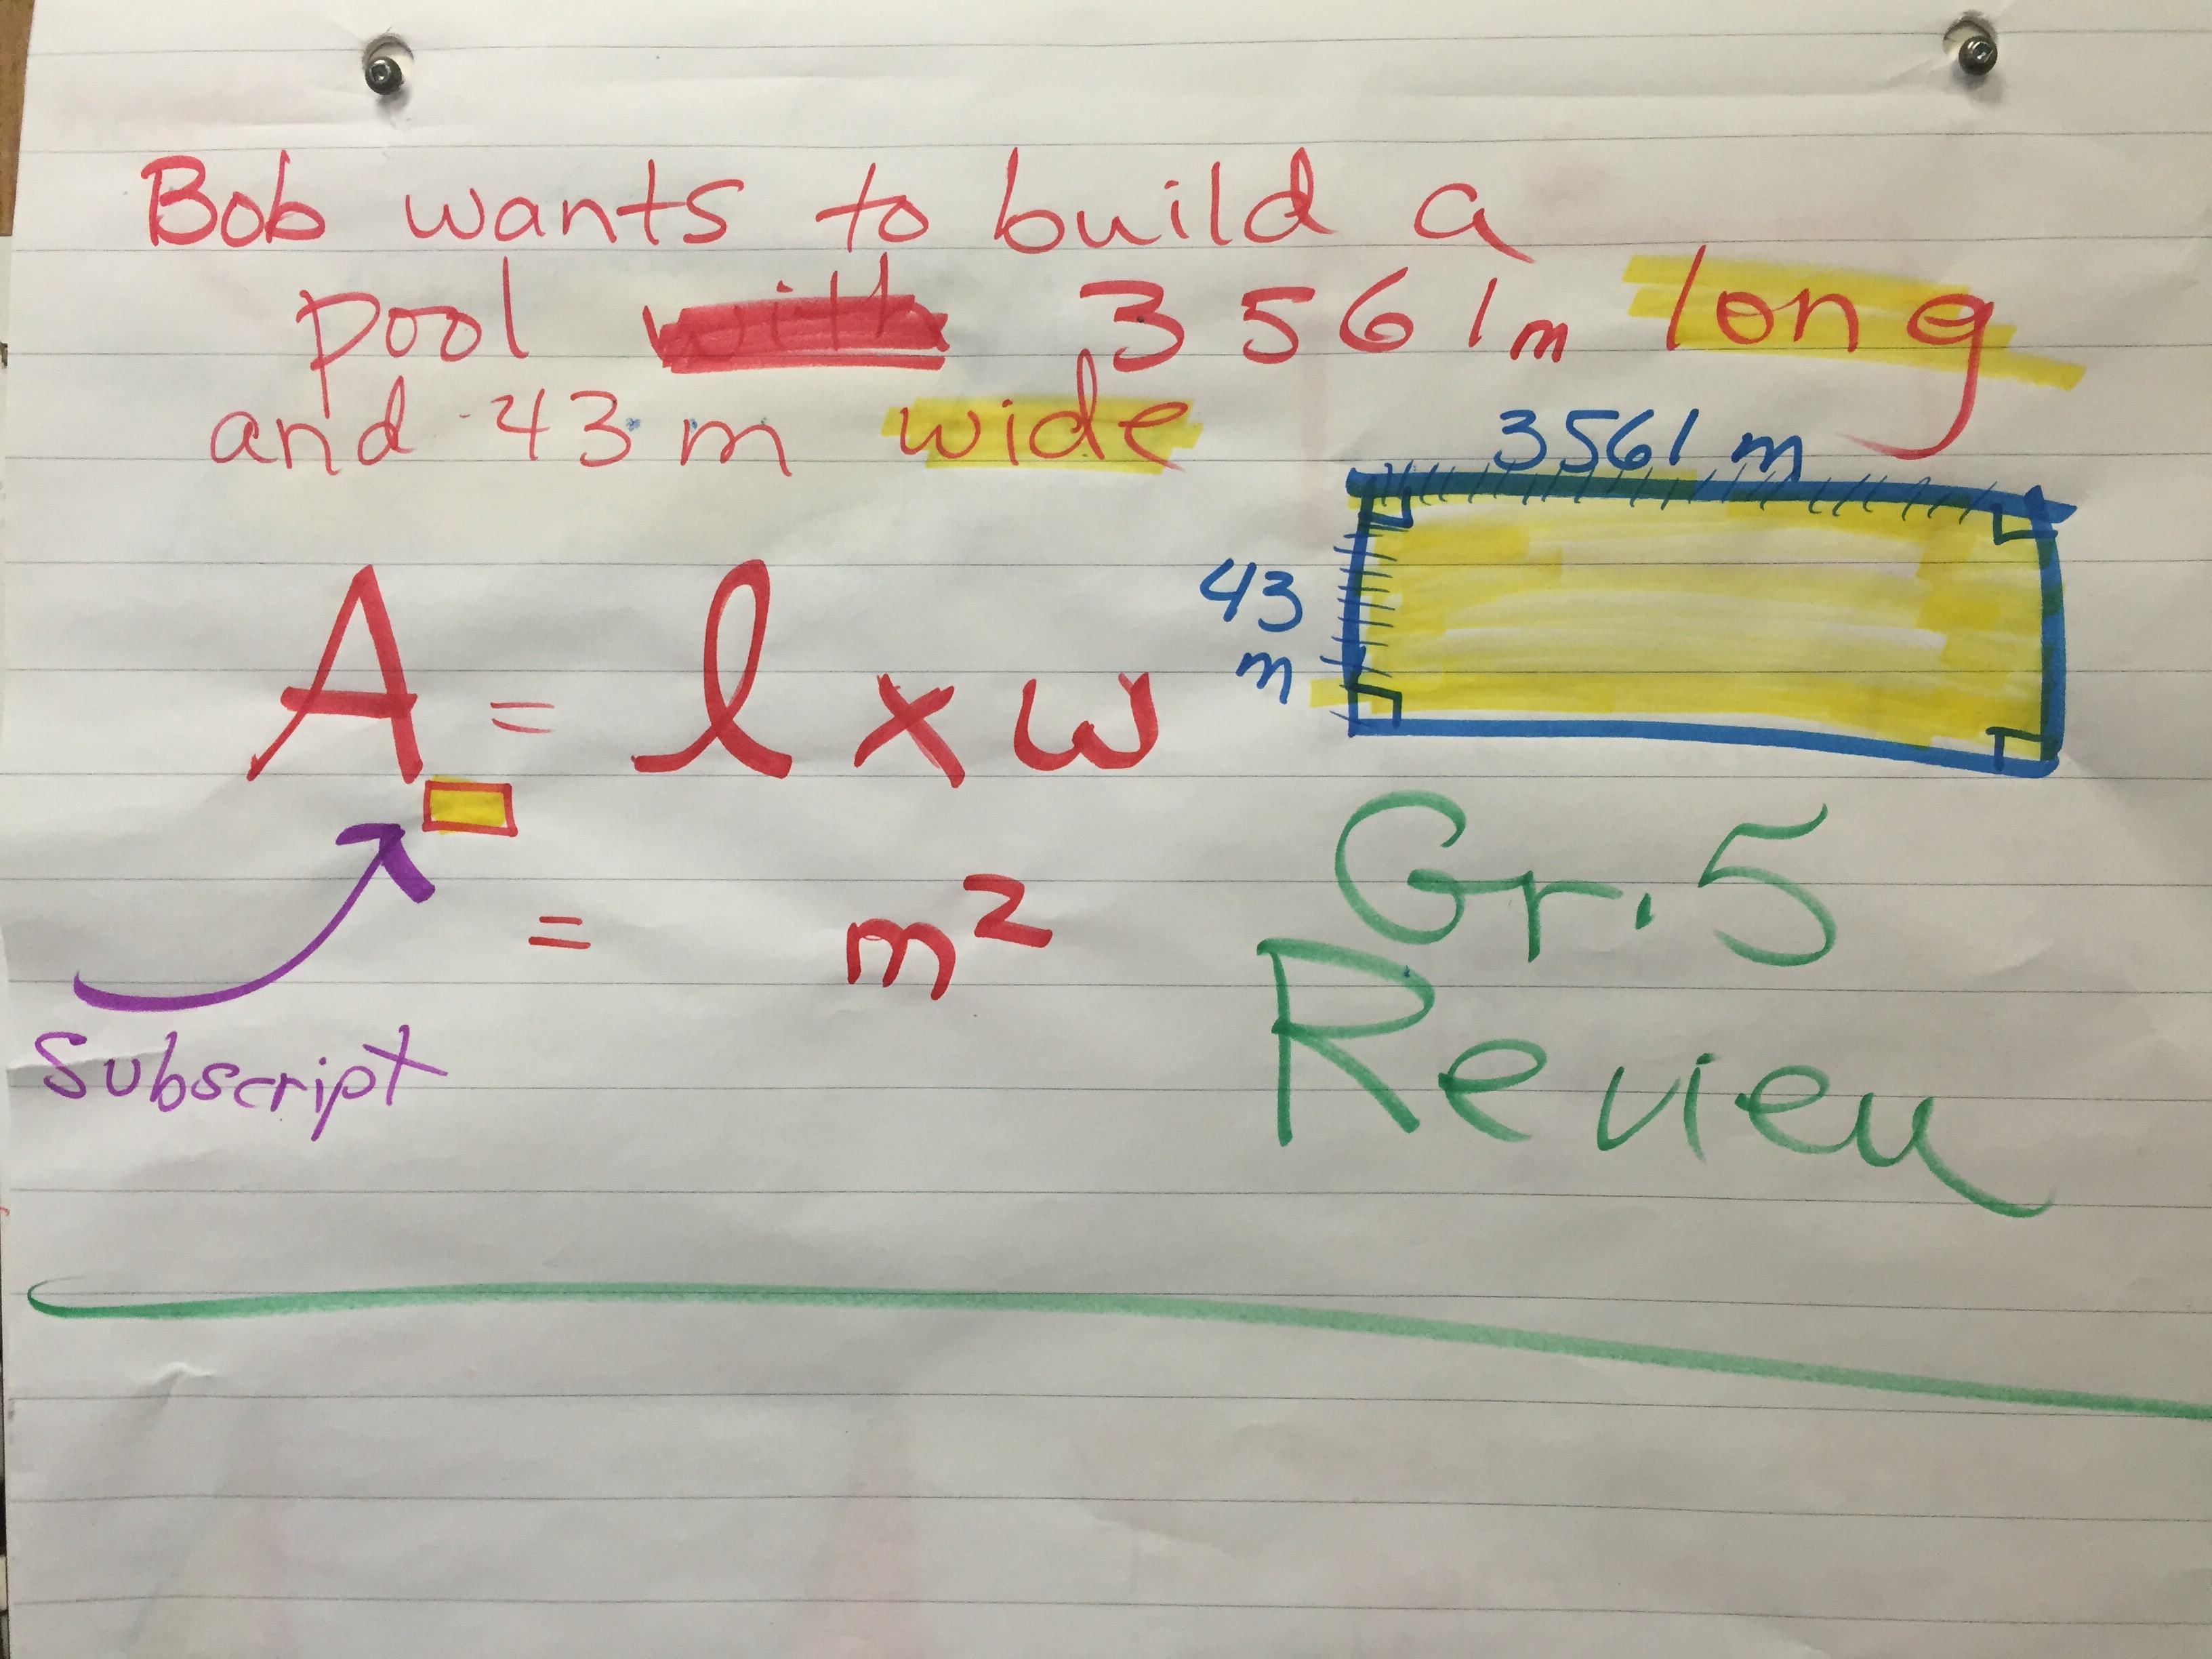 Bob wants to build a
pool with 3561m long
and 43 m wide
3561 m
43
m
A = l x w
= m²
subscript
Gr. 5
Review